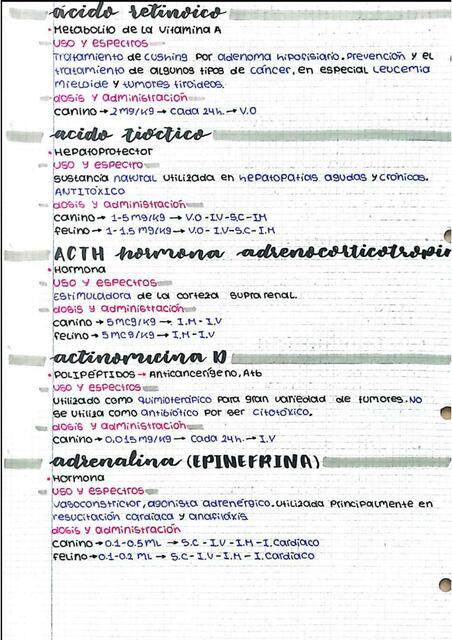 ácido retinoico
• Metabolito de la vitamina A
uso y espectros
Tratamiento de cushing por adenoma hipofisiario. Prevención y el
tratamiento de algunos tipos de cáncer, en especial Leucemia
mieloide y tumores tiroideos.
dosis y administración
canino → 2 mg/kg → cada 24h. → V.O
acido tioctico
• Hepatoprotector
uso y espectro
sustancia natural utilizada en hepatopatías agudas y cronicas.
ANTITÓXICO
dosis y administración
canino → 1-5 mg/kg → V.O - I.V-S.C - IM
felino → 1-1.5 mg/kg → V.O - I.V-S.C - I.M
ACTH hormona adrenocorticotropin
• Hormona
uso y espectros
Estimuladora de la corteza suprarenal.
dosis y administración
canino → 5 mcg/kg → I.M - I.V
felino → 5 mcg/kg → I.M - I.V
actinomicina D
• POLIPÉPTIDOS → Anticancerígeno, Atb
uso y espectros
Utilizado como quimioterápico para gran variedad de tumores. No
se utiliza como antibiótico por ser citotóxico.
dosis y administración
canino → 0.015 mg/kg → cada 24h. → I.V
adrenalina (EPINEFRINA)
• Hormona
uso y espectros
vasoconstrictor, agonista adrenérgico. utilizada principalmente en
resucitación cardíaca y anafilaxis
dosis y administración
canino → 0.1-0.5 mL → S.C - I.V - I.M - I. cardiaco
felino → 0.1-0.2 mL → S.C - I.V - I.M - I. Cardíaco